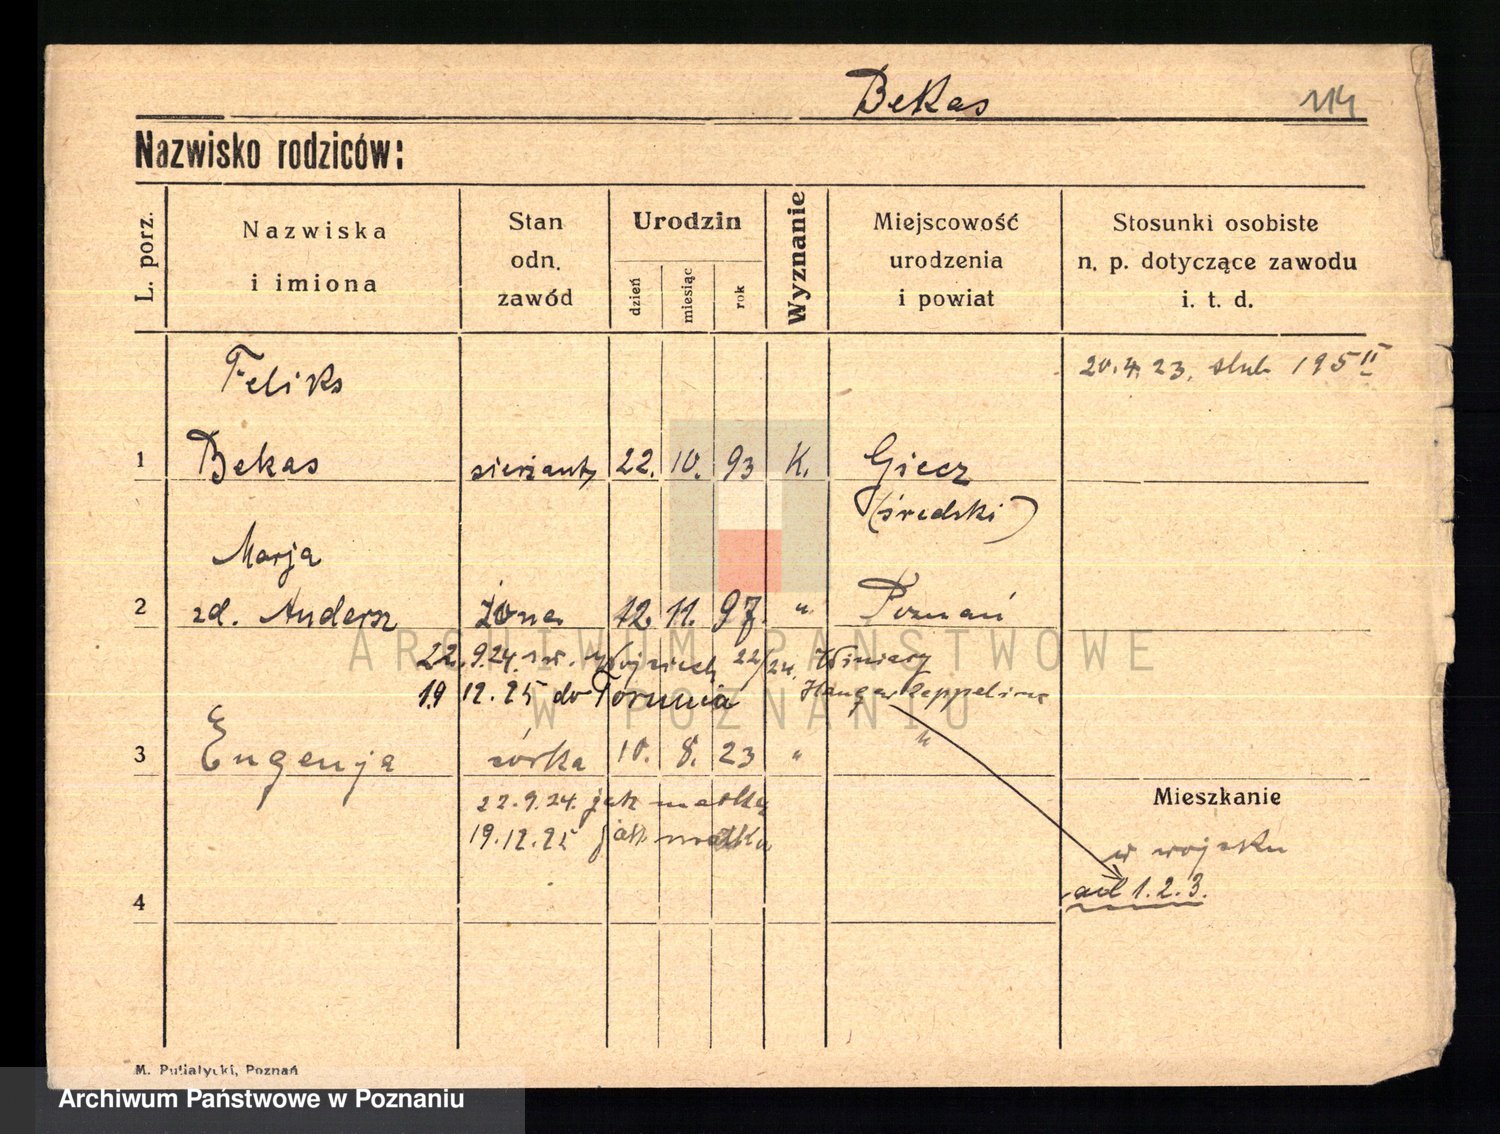 Bekas 114
Nazwisko rodziców:
L. porz.
Nazwiska
i imiona
Stan
odn.
zawód
Urodzin
dzień
miesiąc
rok
Wyznanie
Miejscowość
urodzenia
i powiat
Stosunki osobiste
n. p. dotyczące zawodu
i. t. d.
Feliks 20.4.23. slub 195 II
1 Bekas sierżant 22. 10. 93 K. Giecz
(średski)
Marja
2 zd. Andersz żona 12. 11. 97. " Poznań
22.9.24. Wojciech 22/24. Winiary
19 12.25 do Torunia Hangar Zeppelina
3 Eugenja córka 10. 8. 23 " "
22.9.24. jak matka
19.12.25 jak matka
Mieszkanie
w wojsku
ad 1.2.3.
4
M. Putiatycki, Poznań
ARCHIWUM PAŃSTWOWE
W POZNANIU
Archiwum Państwowe w Poznaniu